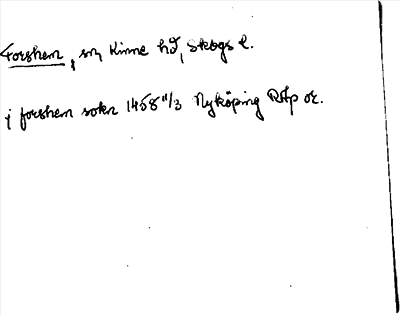 Forshem, sn, Kinne hd, Skbgs l.
j forshem sokn 1458 11/3 Nyköping RAp or.